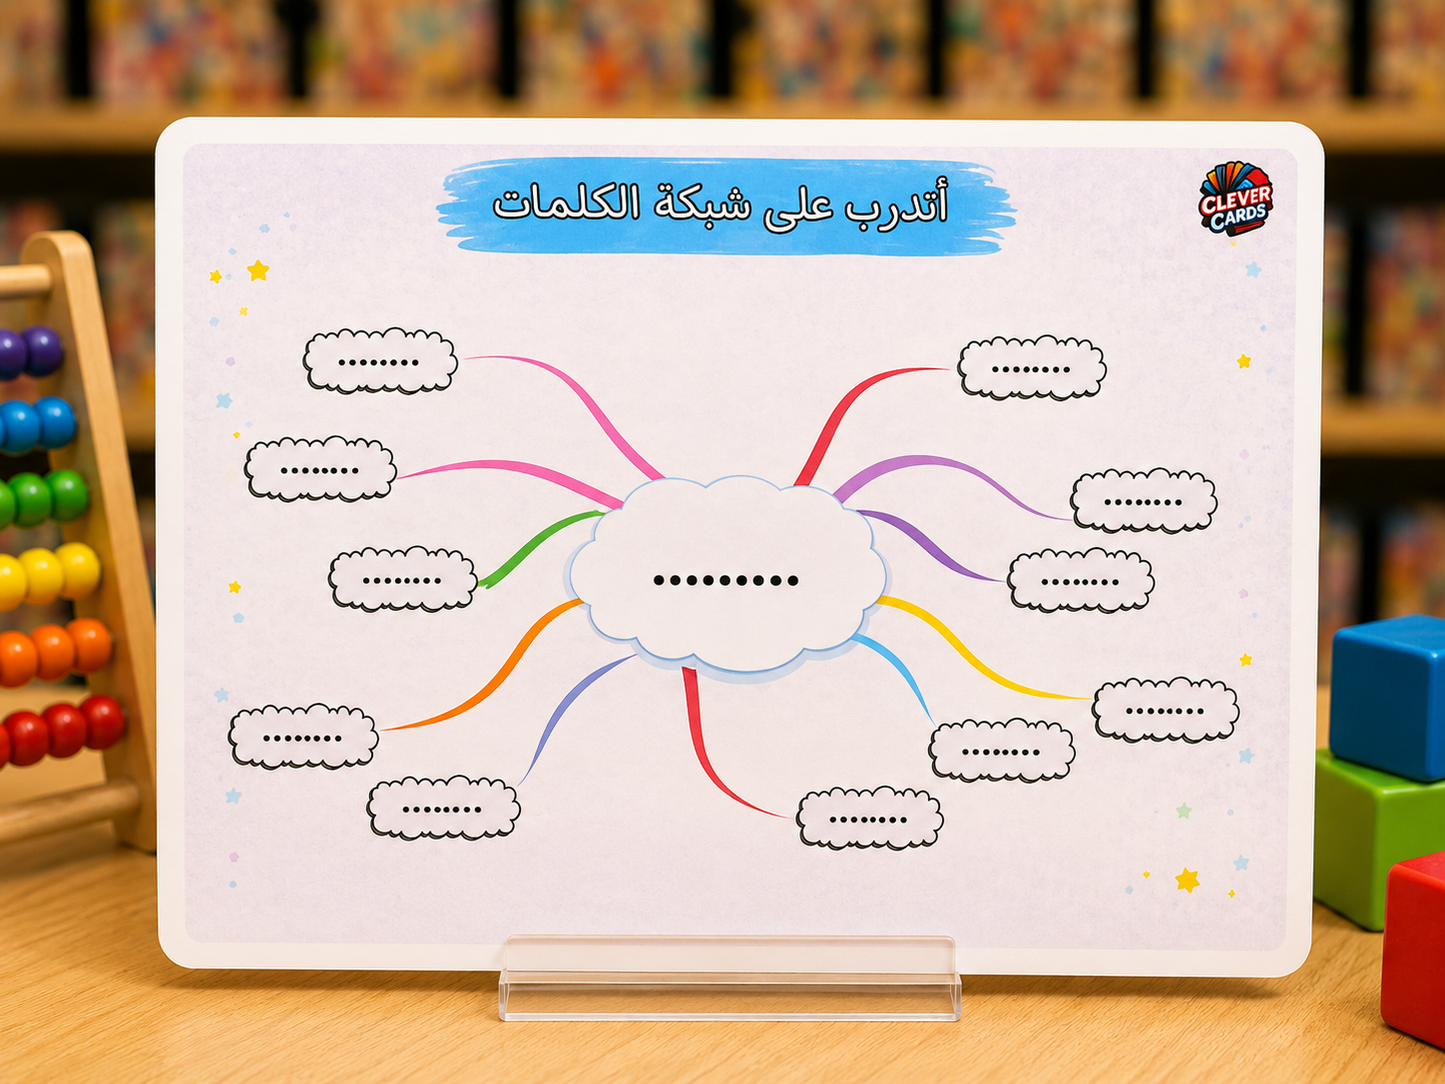 أتدرب على شبكة الكلمات
CLEVER
CARDS
........
........
........
........
........
.........
........
........
........
........
........
........